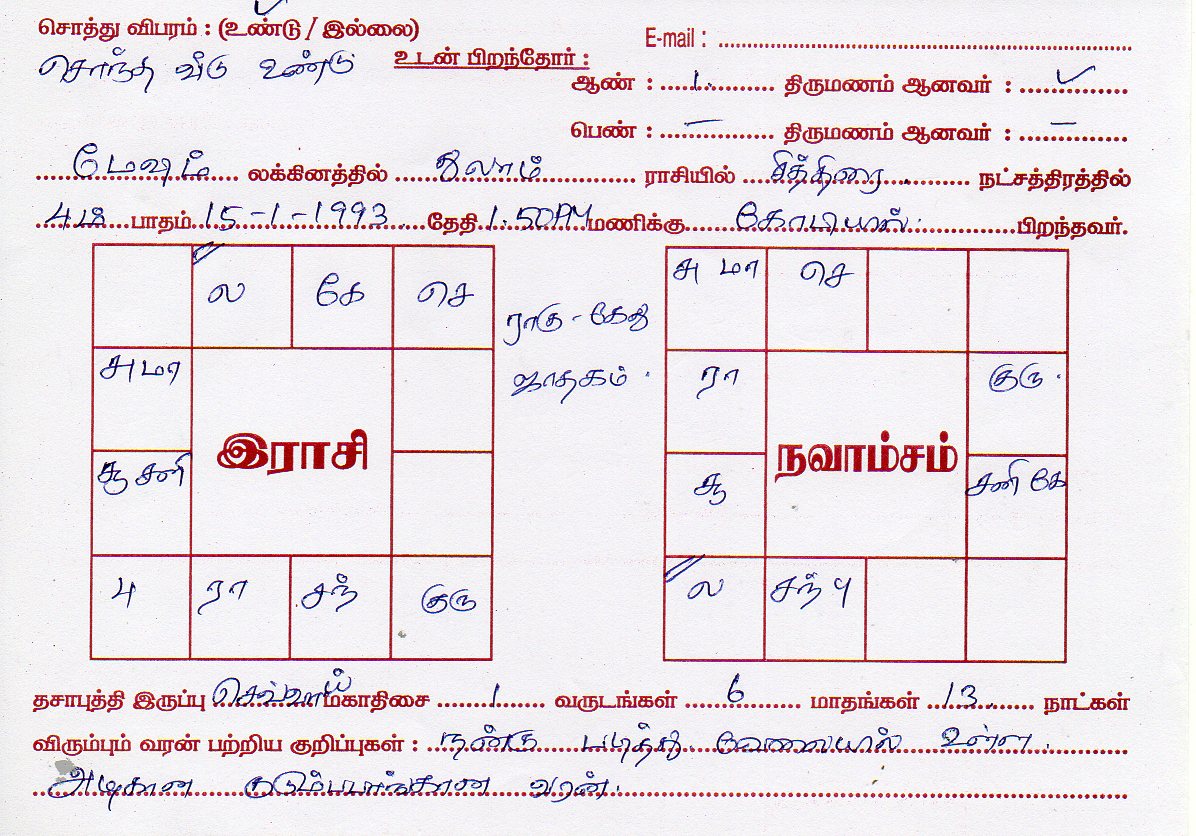 சொத்து விபரம் : (உண்டு / இல்லை)
E-mail :
சொந்த வீடு உண்டு
உடன் பிறந்தோர் :
ஆண் : 1. திருமணம் ஆனவர் : ✓
பெண் : — திருமணம் ஆனவர் : —
மேஷம் லக்கினத்தில் துலாம் ராசியில் சித்திரை நட்சத்திரத்தில்
4ம் பாதம் 15-1-1993 தேதி 1.50PM மணிக்கு கோபியில் பிறந்தவர்.
ல கே செ
சு மா
சூ சனி
இராசி
பு ரா சந் குரு
ராகு - கேது
ஜாதகம்.
சு மா செ
ரா குரு
சூ சனி கே
நவாம்சம்
ல சந் பு
தசாபுத்தி இருப்பு செவ்வாய் மகாதிசை 1 வருடங்கள் 6 மாதங்கள் 13 நாட்கள்
விரும்பும் வரன் பற்றிய குறிப்புகள் : நன்கு படித்து வேலையில் உள்ள
அழகான குடும்பபாங்கான வரன்.